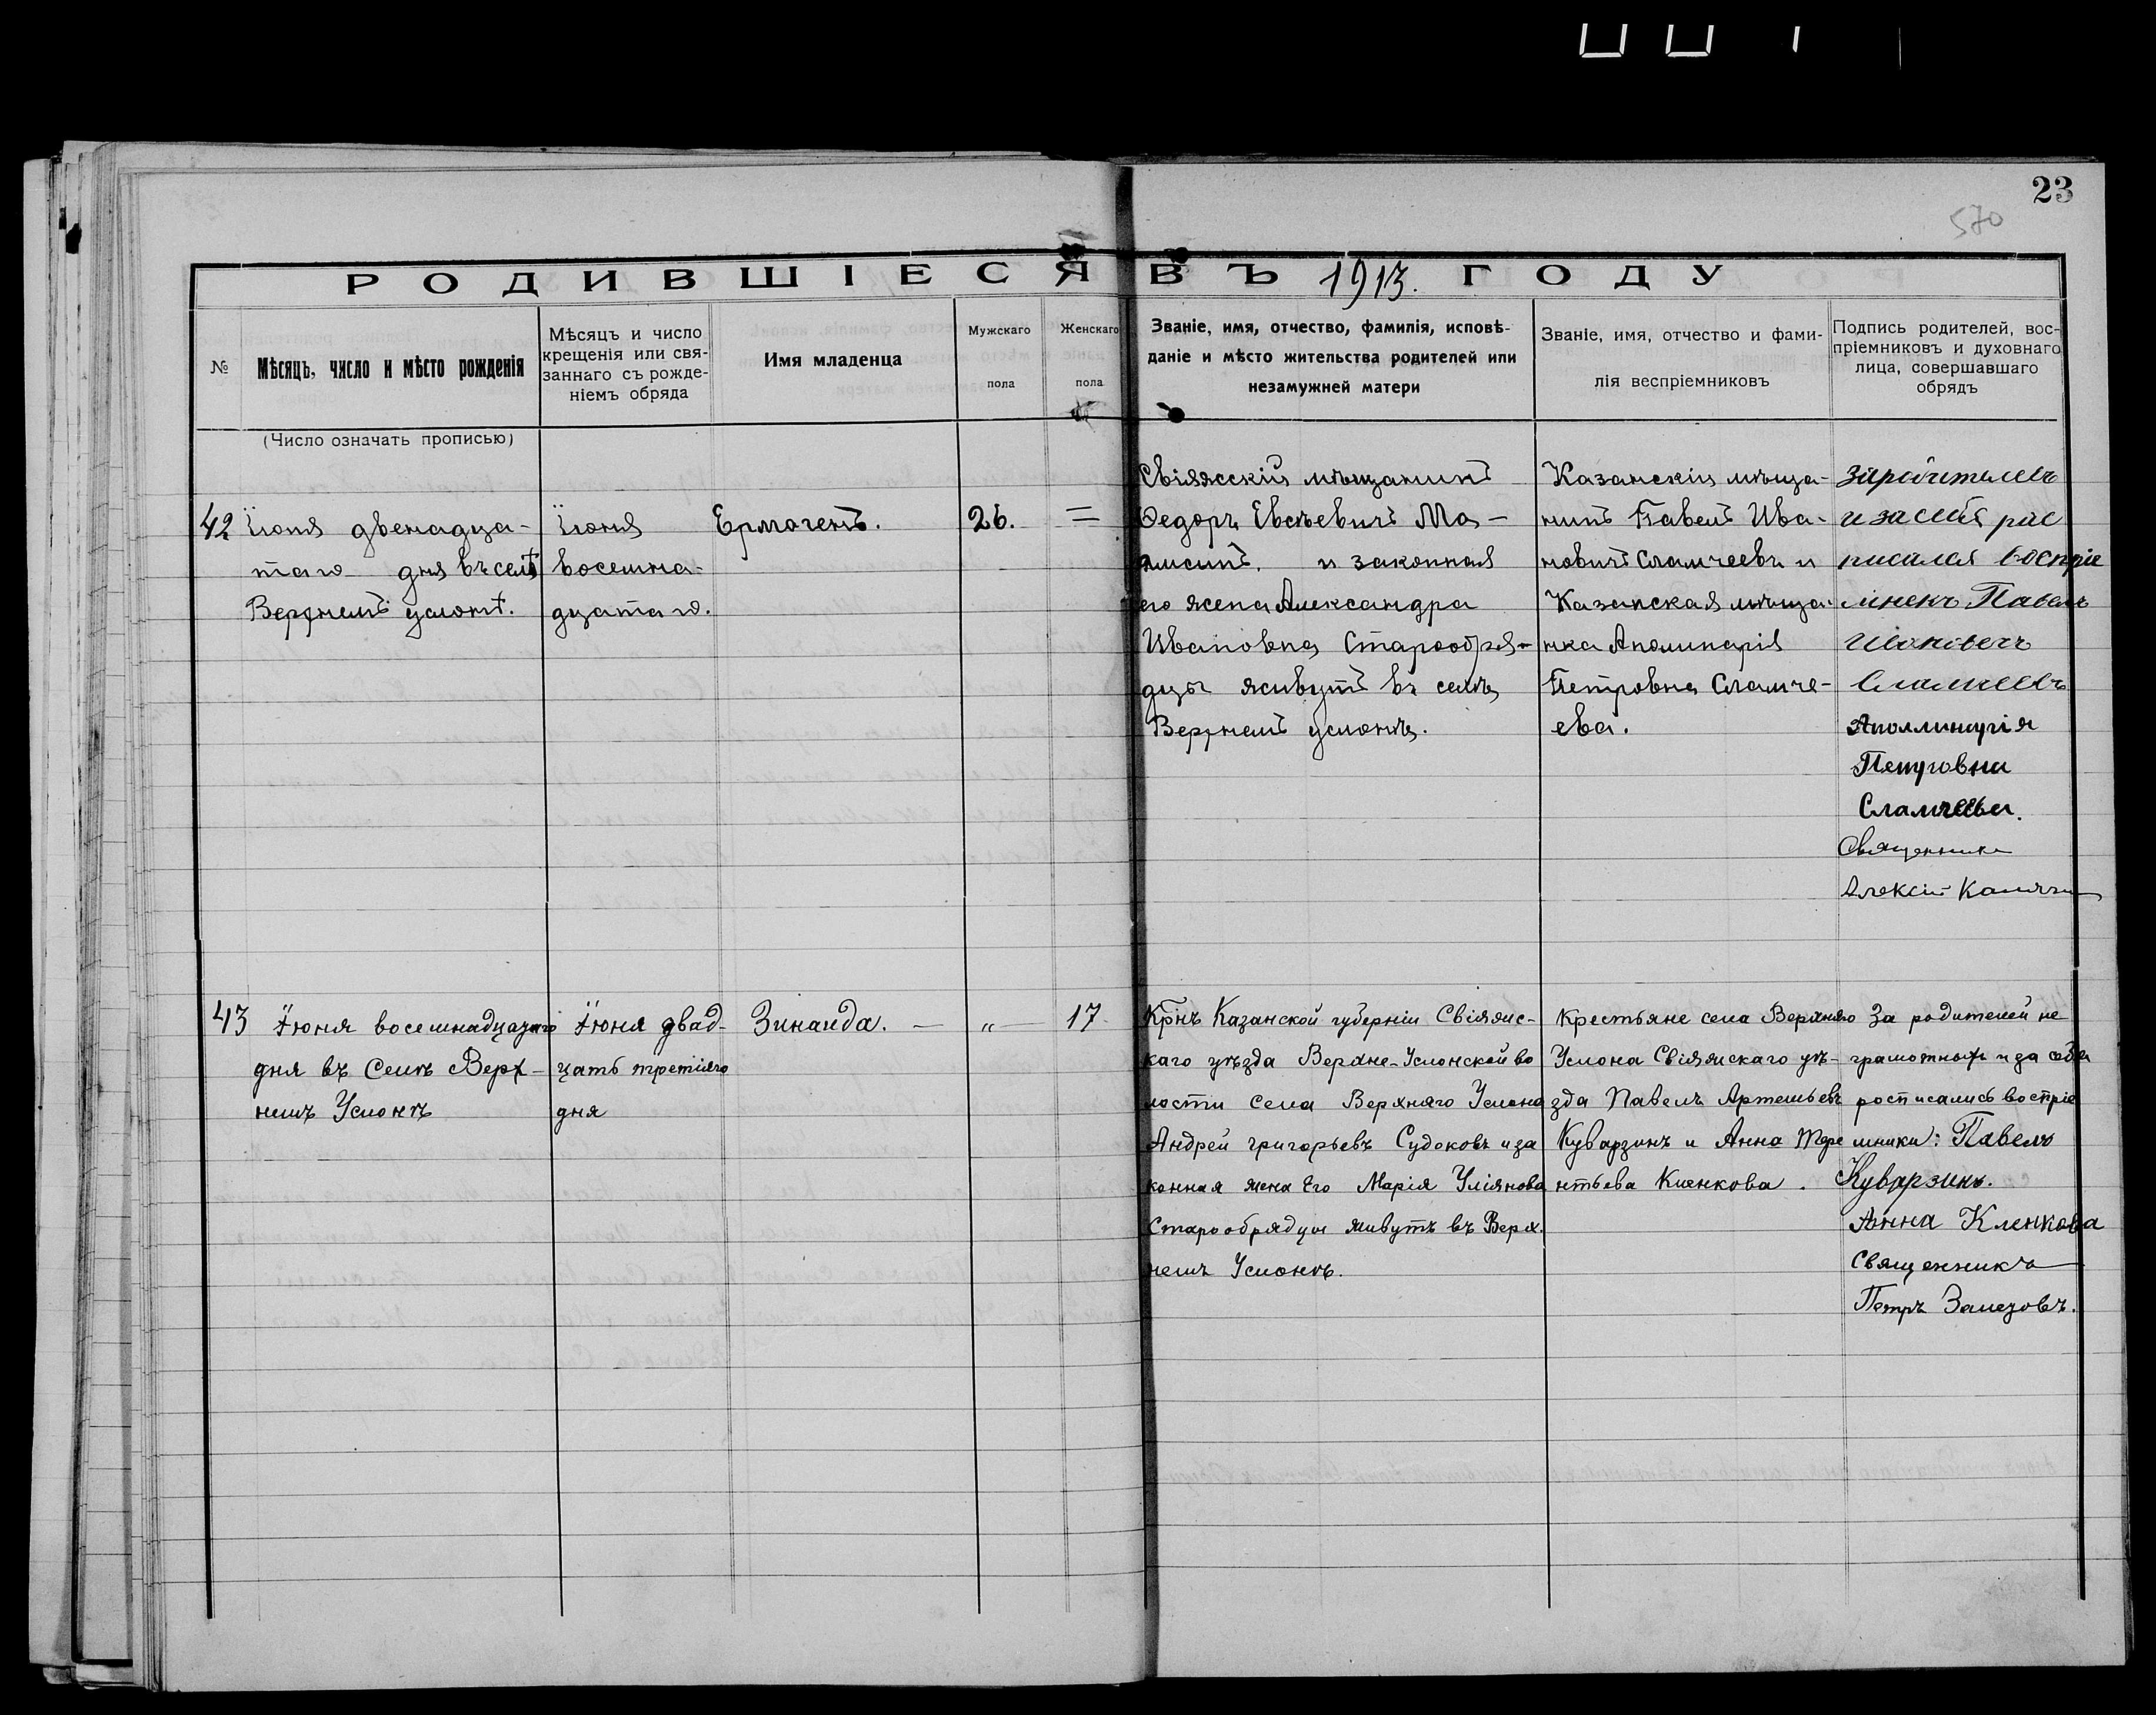 23
570
РОДИВШІЕСЯ ВЪ 1913. ГОДУ
№
Мѣсяцъ, число и мѣсто рожденія
(Число означать прописью)
Мѣсяцъ и число
крещенія или свя-
заннаго съ рожде-
ніемъ обряда
Имя младенца
Мужскаго
пола
Женскаго
пола
Званіе, имя, отчество, фамилія, исповѣ-
даніе и мѣсто жительства родителей или
незамужней матери
Званіе, имя, отчество и фами-
лія веспріемниковъ
Подпись родителей, вос-
пріемниковъ и духовнаго
лица, совершавшаго
обрядъ
42
Іюня двенадца-
таго дня въ селѣ
Верхнемъ услонѣ.
Іюня
восемна-
дцатаго.
Ермогенъ.
26.
=
Свіяжскій мѣщанинъ
Федоръ Евсѣевичъ
и законная
его жена Александра
Ивановна, Старообря-
дцы живутъ въ селѣ
Верхнемъ услонѣ.
Казанскій мѣща-
нинъ Павелъ Ива-
новичъ Сламчеевъ и
Казанская мѣща-
нка Аполинарія
Петровна Сламче-
ева.
и за себя рас
писался воспріе
мнекъ Павелъ
Ивановечъ
Сламчеевъ
Аполлинарія
Петровна
Сламчеева.
Священникъ
Алексій
43
Іюня восемнадцатаго
дня въ Селѣ Верх-
немъ Услонѣ
Іюня двад-
цать третіяго
дня
Зинаида. —
„ —
17
Крнъ Казанской губерніи Свіяжс-
каго уѣзда Верхне-Услонской во
лости села Верхняго Услона
Андрей григорьевъ Судоковъ и за
конная жена Его Марія Уліянова
Старообрядцы живутъ въ Верх.
немъ Услонѣ.
Крестьяне села Верхняго
Услона Свіяжскаго уѣ-
зда Павелъ Артемьевъ
Куварзинъ и Анна Тере
нтьева Кленкова.
За родителей не
грамотныхъ и за себя
росписались воспріе
мники: Павелъ
Куварзинъ.
Анна Кленкова
Священникъ
Петръ Залезовъ.